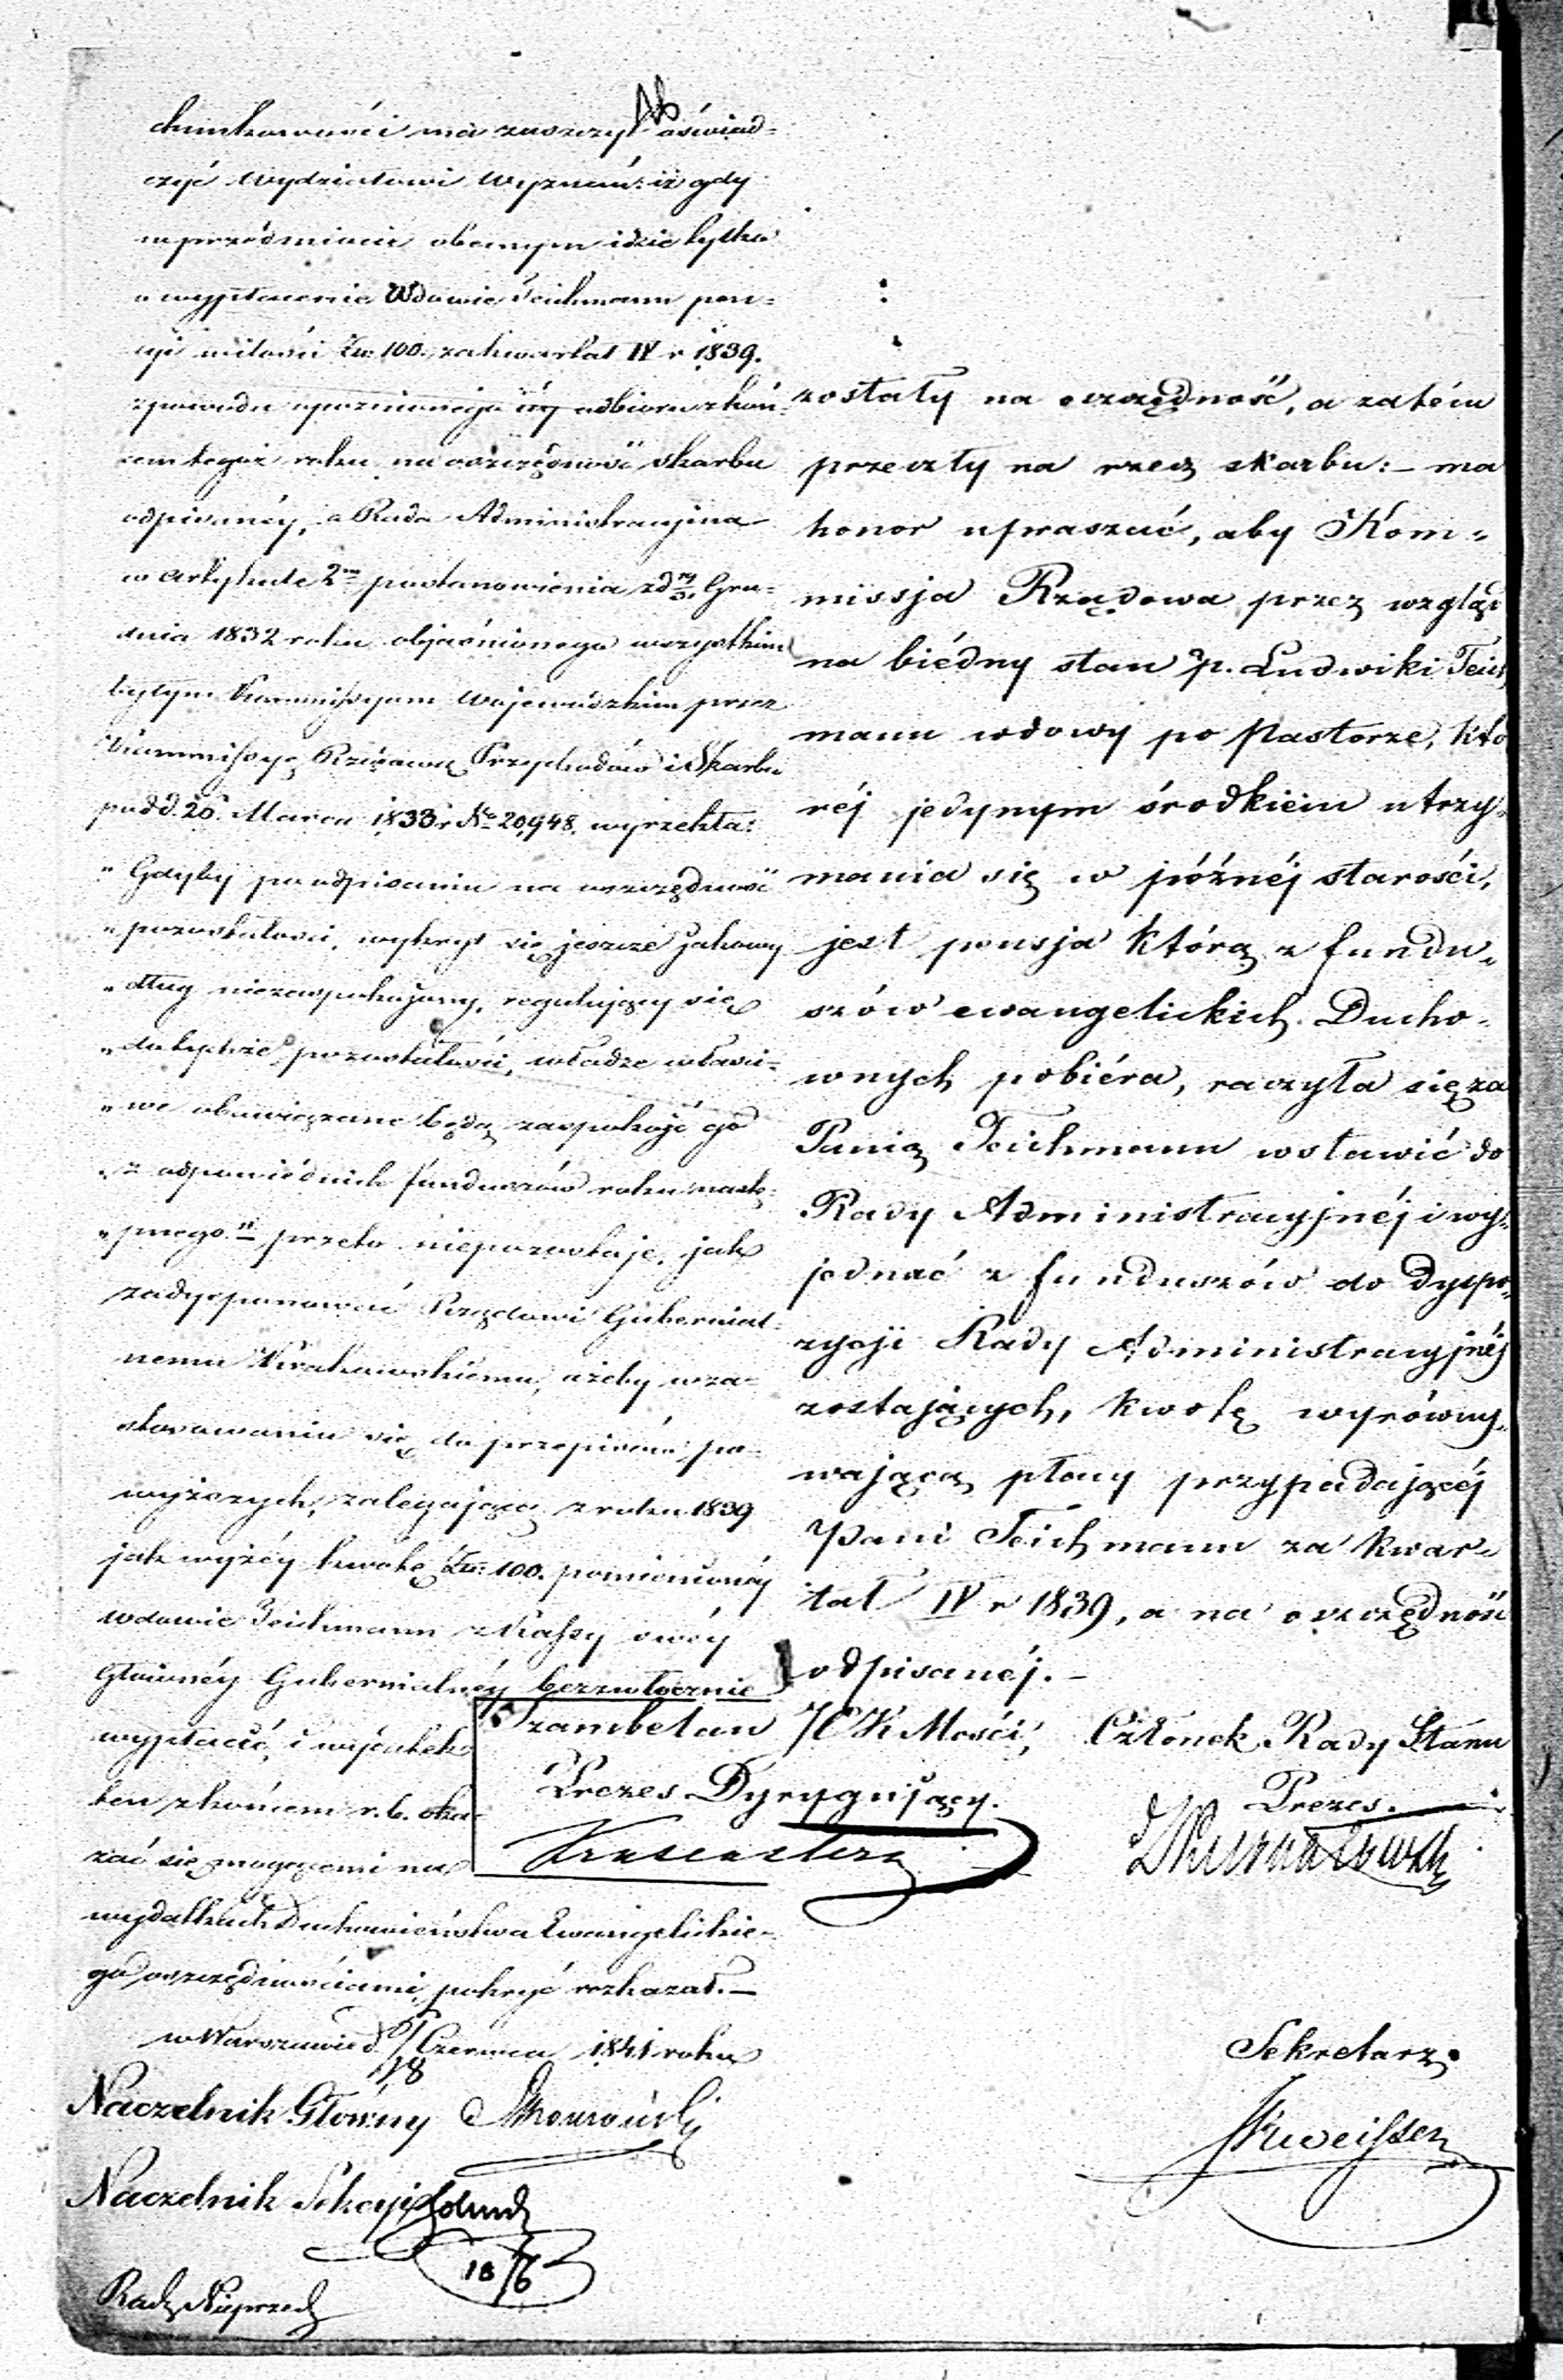 chunkowości ma zaszczyt oświad=
czyć Wydziałowi Wyznań: iż gdy
w przedmiocie obecnym idzie tylko
o wypłacenie Wdowie Teichmann pen=
sji miłości Zł: 100. za kwartał IV r 1839.
z powodu opóźnionego jéj odbioru z koń=
cem tegoż roku na oszczędność skarbu
odpisanéy, a Rada Administracyjna
w artykule 2m postanowienia z d Gru=
dnia 1832 roku objaśnionego wszystkim
byłym Kommissyom Wojewódzkim przez
Kommissyę Rządową Przychodów i Skarbu
pod d. 26. Marca 1833 r No 20,948. wyrzekła:
"Gdyby po odpisaniu na oszczędność
"pozostałości, wykrył się jeszcze jakowy
"dług niezaspokojony, regulujący się
"do tychże pozostałości, władze właści=
"we obowiązane będą zaspokoić go
"z odpowiednich funduszów roku nastę=
"pnego." przeto niepozostaje, jak
zadysponować Rządowi Gubernial=
nemu Krakowskiemu, ażeby w za=
stosowaniu się do przepisów po=
wyższych, zalegającą z roku 1839
jak wyżéy kwotę Zł: 100. pomienionéy
wdowie Teichmann z Kassy swéy
Głównéy Gubernialnéy bezzwłocznie
wypłacić, i wydatek
ten z końcem r. b. oka=
zać się mogącemi na
wydatkach Duchowieństwa Ewangelickie=
go oszczędnościami pokryć rozkazał.—
w Warszawie d 6/18 Czerwca 1841 roku
Naczelnik Główny
Naczelnik Sekcyi
18/6
zostały na oszczędność, a zatém
przeszły na rzecz skarbu:— ma
honor upraszać, aby Kom=
missja Rządowa przez wzgląd
na biédny stan p. Ludwiki Teich
mann wdowy po Pastorze, któ
réj jedynym środkiem utrzy=
mania się w późnéj starości,
jest pensja którą z fundu=
szów ewangelickich Ducho=
wnych pobiéra, raczyła się za
Panią Teichmann wstawić do
Rady Administracyjnéj i wy=
jednać z funduszów do dyspo=
zycji Rady Administracyjnéj
zostających, kwotę wyrówny=
wającą płacy przypadającéj
Pani Teichmann za kwar=
tał IV r 1839, a na oszczędność
odpisanéj.—
Szambelan JCK Mości, Członek Rady Stanu
Prezes Dyrygujący. Prezes.
Sekretarz.